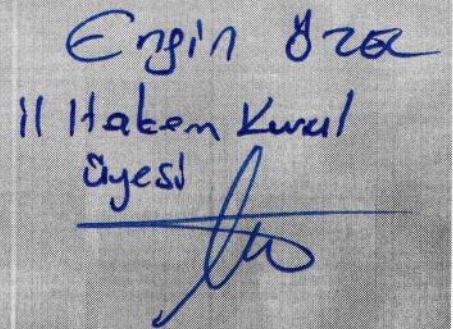 Engin Özel
İl Hakem Kurul
üyesi